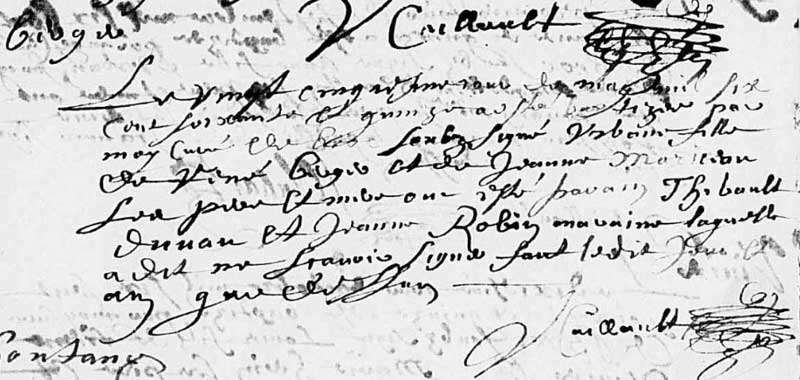 Caillault
Le vingt cinquiesme jour de may mil six
cent soixante et quinze a esté baptizée par
moy curé de soubz signé Urbaine fille
de René et de Jeanne
Les pere et mere ont esté parain Thibault
Duvau et Jeanne Robin maraine laquelle
a dit ne scavoir signer fait ledit jour et
an que dessus
Caillault